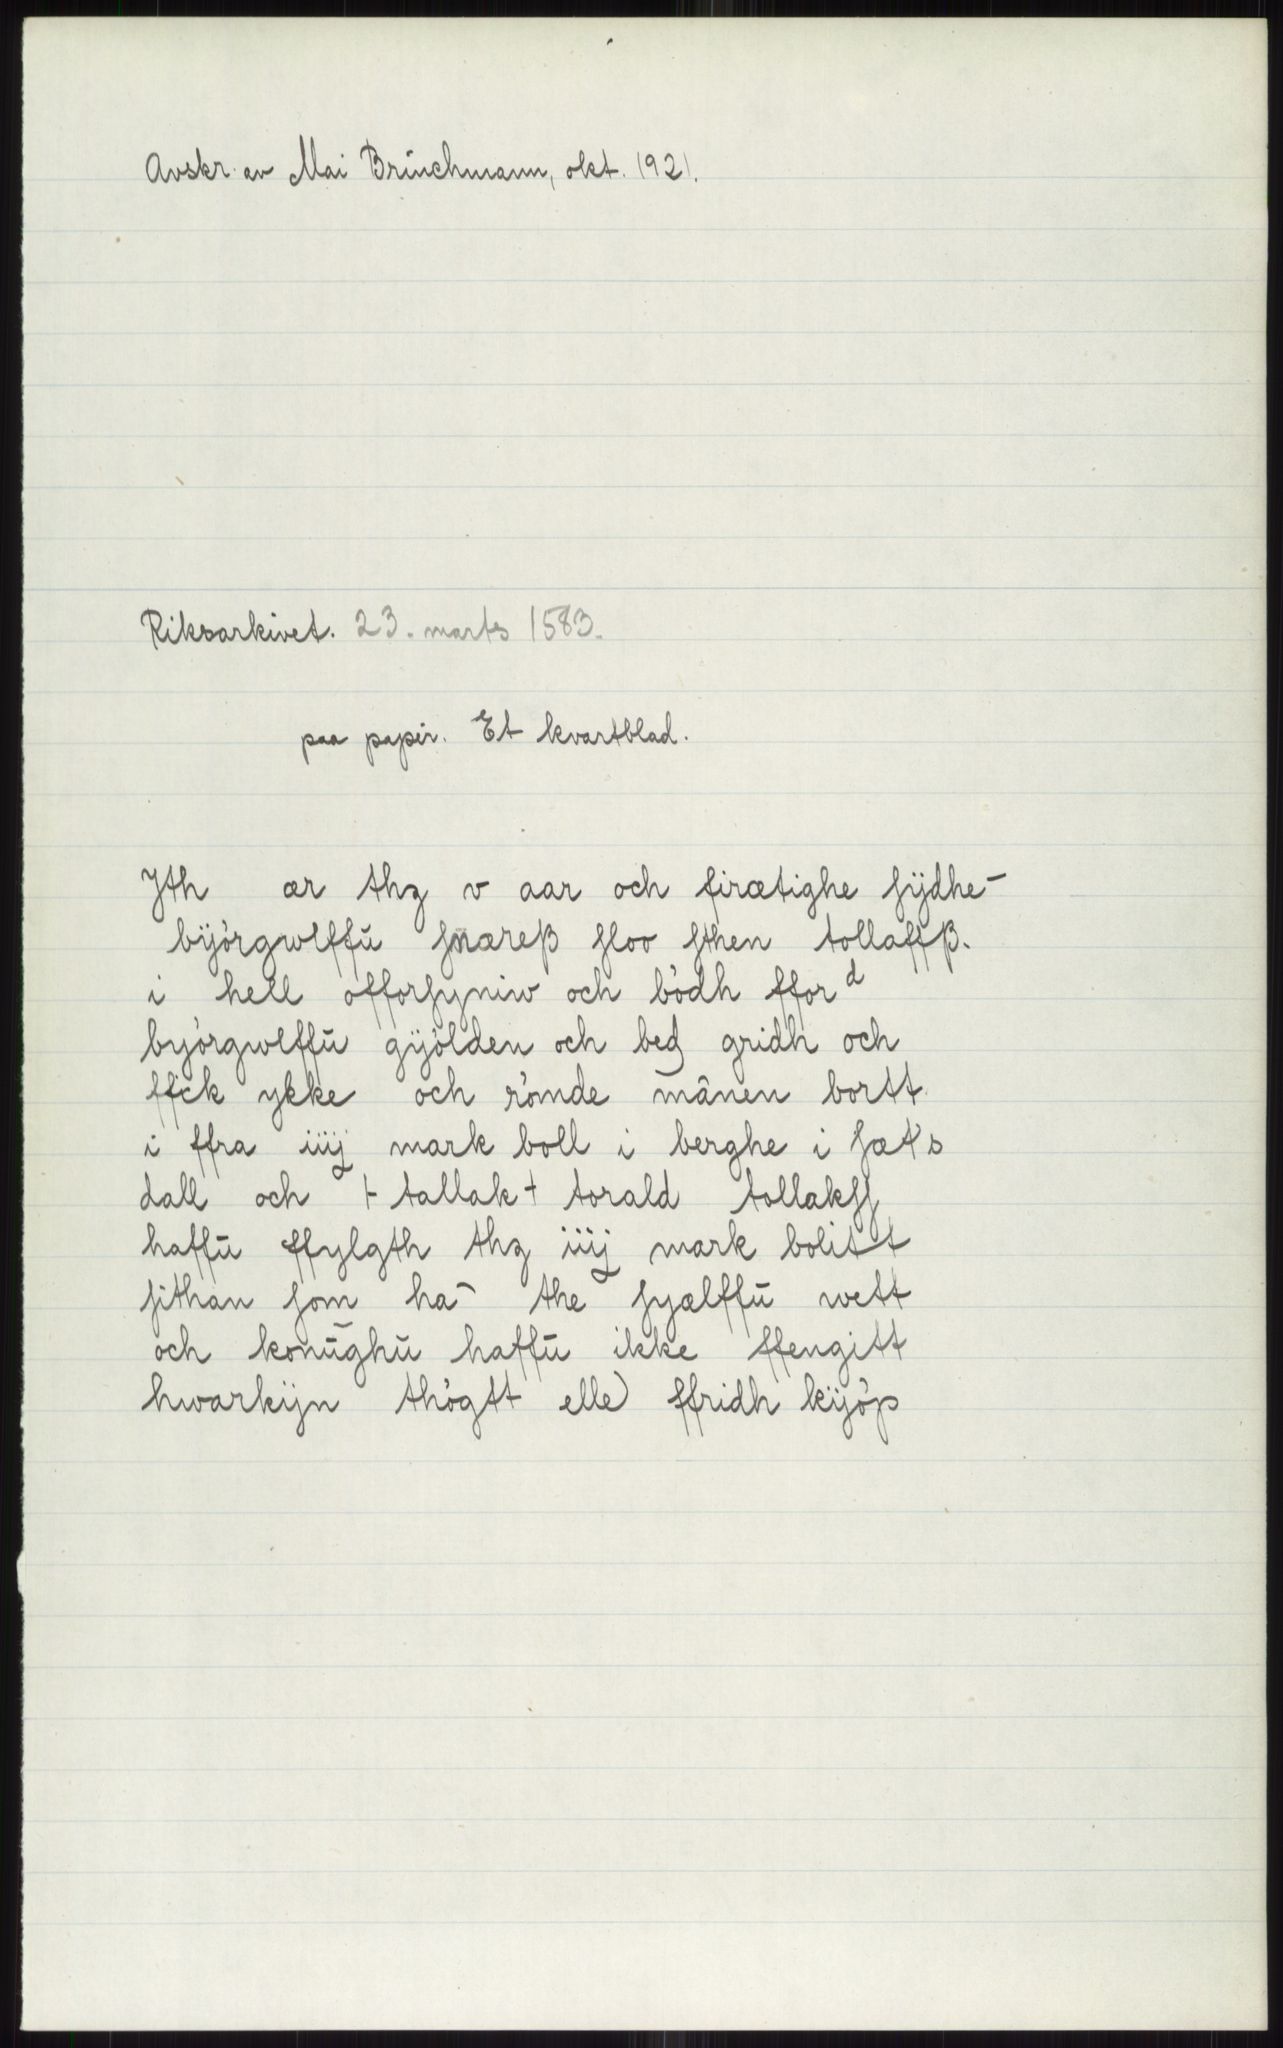 Avskr. av Mai Bruuchmann, okt. 1921.
Riksarkivet. 23. marts 1583.
paa papir. Et kvartblad.
Jth ær thz v aar och firætighe ſÿdhe-
bÿórgwlffū ſnæreß ſloo ſthen tollaffß.
i hell offorſyniw och bódh fforᵈ
byórgwlffū gÿólden och beg gridh och
ffick ykke och rómde mānen bortt
i ffra iiij mark boll i berghe i ſæt's
dall och ⊦ tallak ⊣ torald tollakſſ
haffū ffylgth thz iiij mark bolitt
ſithan ſom ha- the ſyælffū wett
och konūghū haffū ikke ffengitt
hwarkÿn thógtt elle) ffridh kÿóp